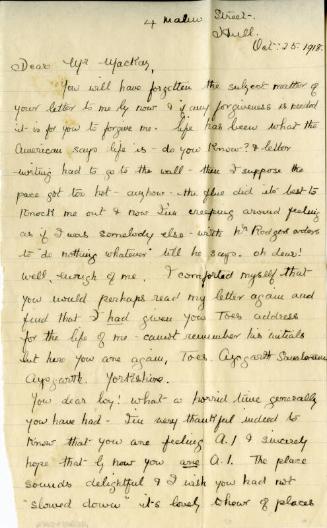 4 Malm Street.
Hull.
Oct: 25. 1918.
Dear Mr Mackay,
You will have forgotten the subject matter of
your letter to me by now & if any forgiveness is needed
it is for you to forgive me. Life has been what the
American says life is - do you know? & letter
-writing had to go to the wall - then I suppose the
pace got too hot - anyhow - the flue did its best to
knock me out & now I'm creeping around feeling
as if I was somebody else - with Mr Rodgers orders
to "do nothing whatever" till he says. Oh dear!
Well, enough of me. I comforted myself that
you would perhaps read my letter again and
find that I had given you Toes address
for the life of me - cannot remember his initials
but here you are again, Toes. Aysgarth Sanatorium
Aysgarth. Yorkshire.
You dear boy! what a horrid time generally
you have had - I'm very thankful indeed to
know that you are feeling A.1 & sincerely
hope that by now you are A.1. The place
sounds delightful & I wish you had not
"slowed down" it's lovely to hear of places